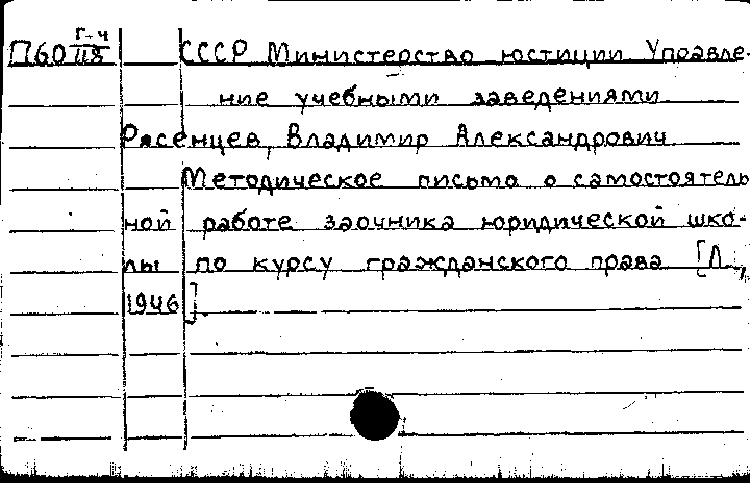 П60 Г-ч СССР Министерство юстиции Управле-
118 ние учебными заведениями
Рясенцев, Владимир Александрович
Методическое письмо о самостоятель
ной работе заочника юридической шко-
лы по курсу гражданского права [Л.,
1946].